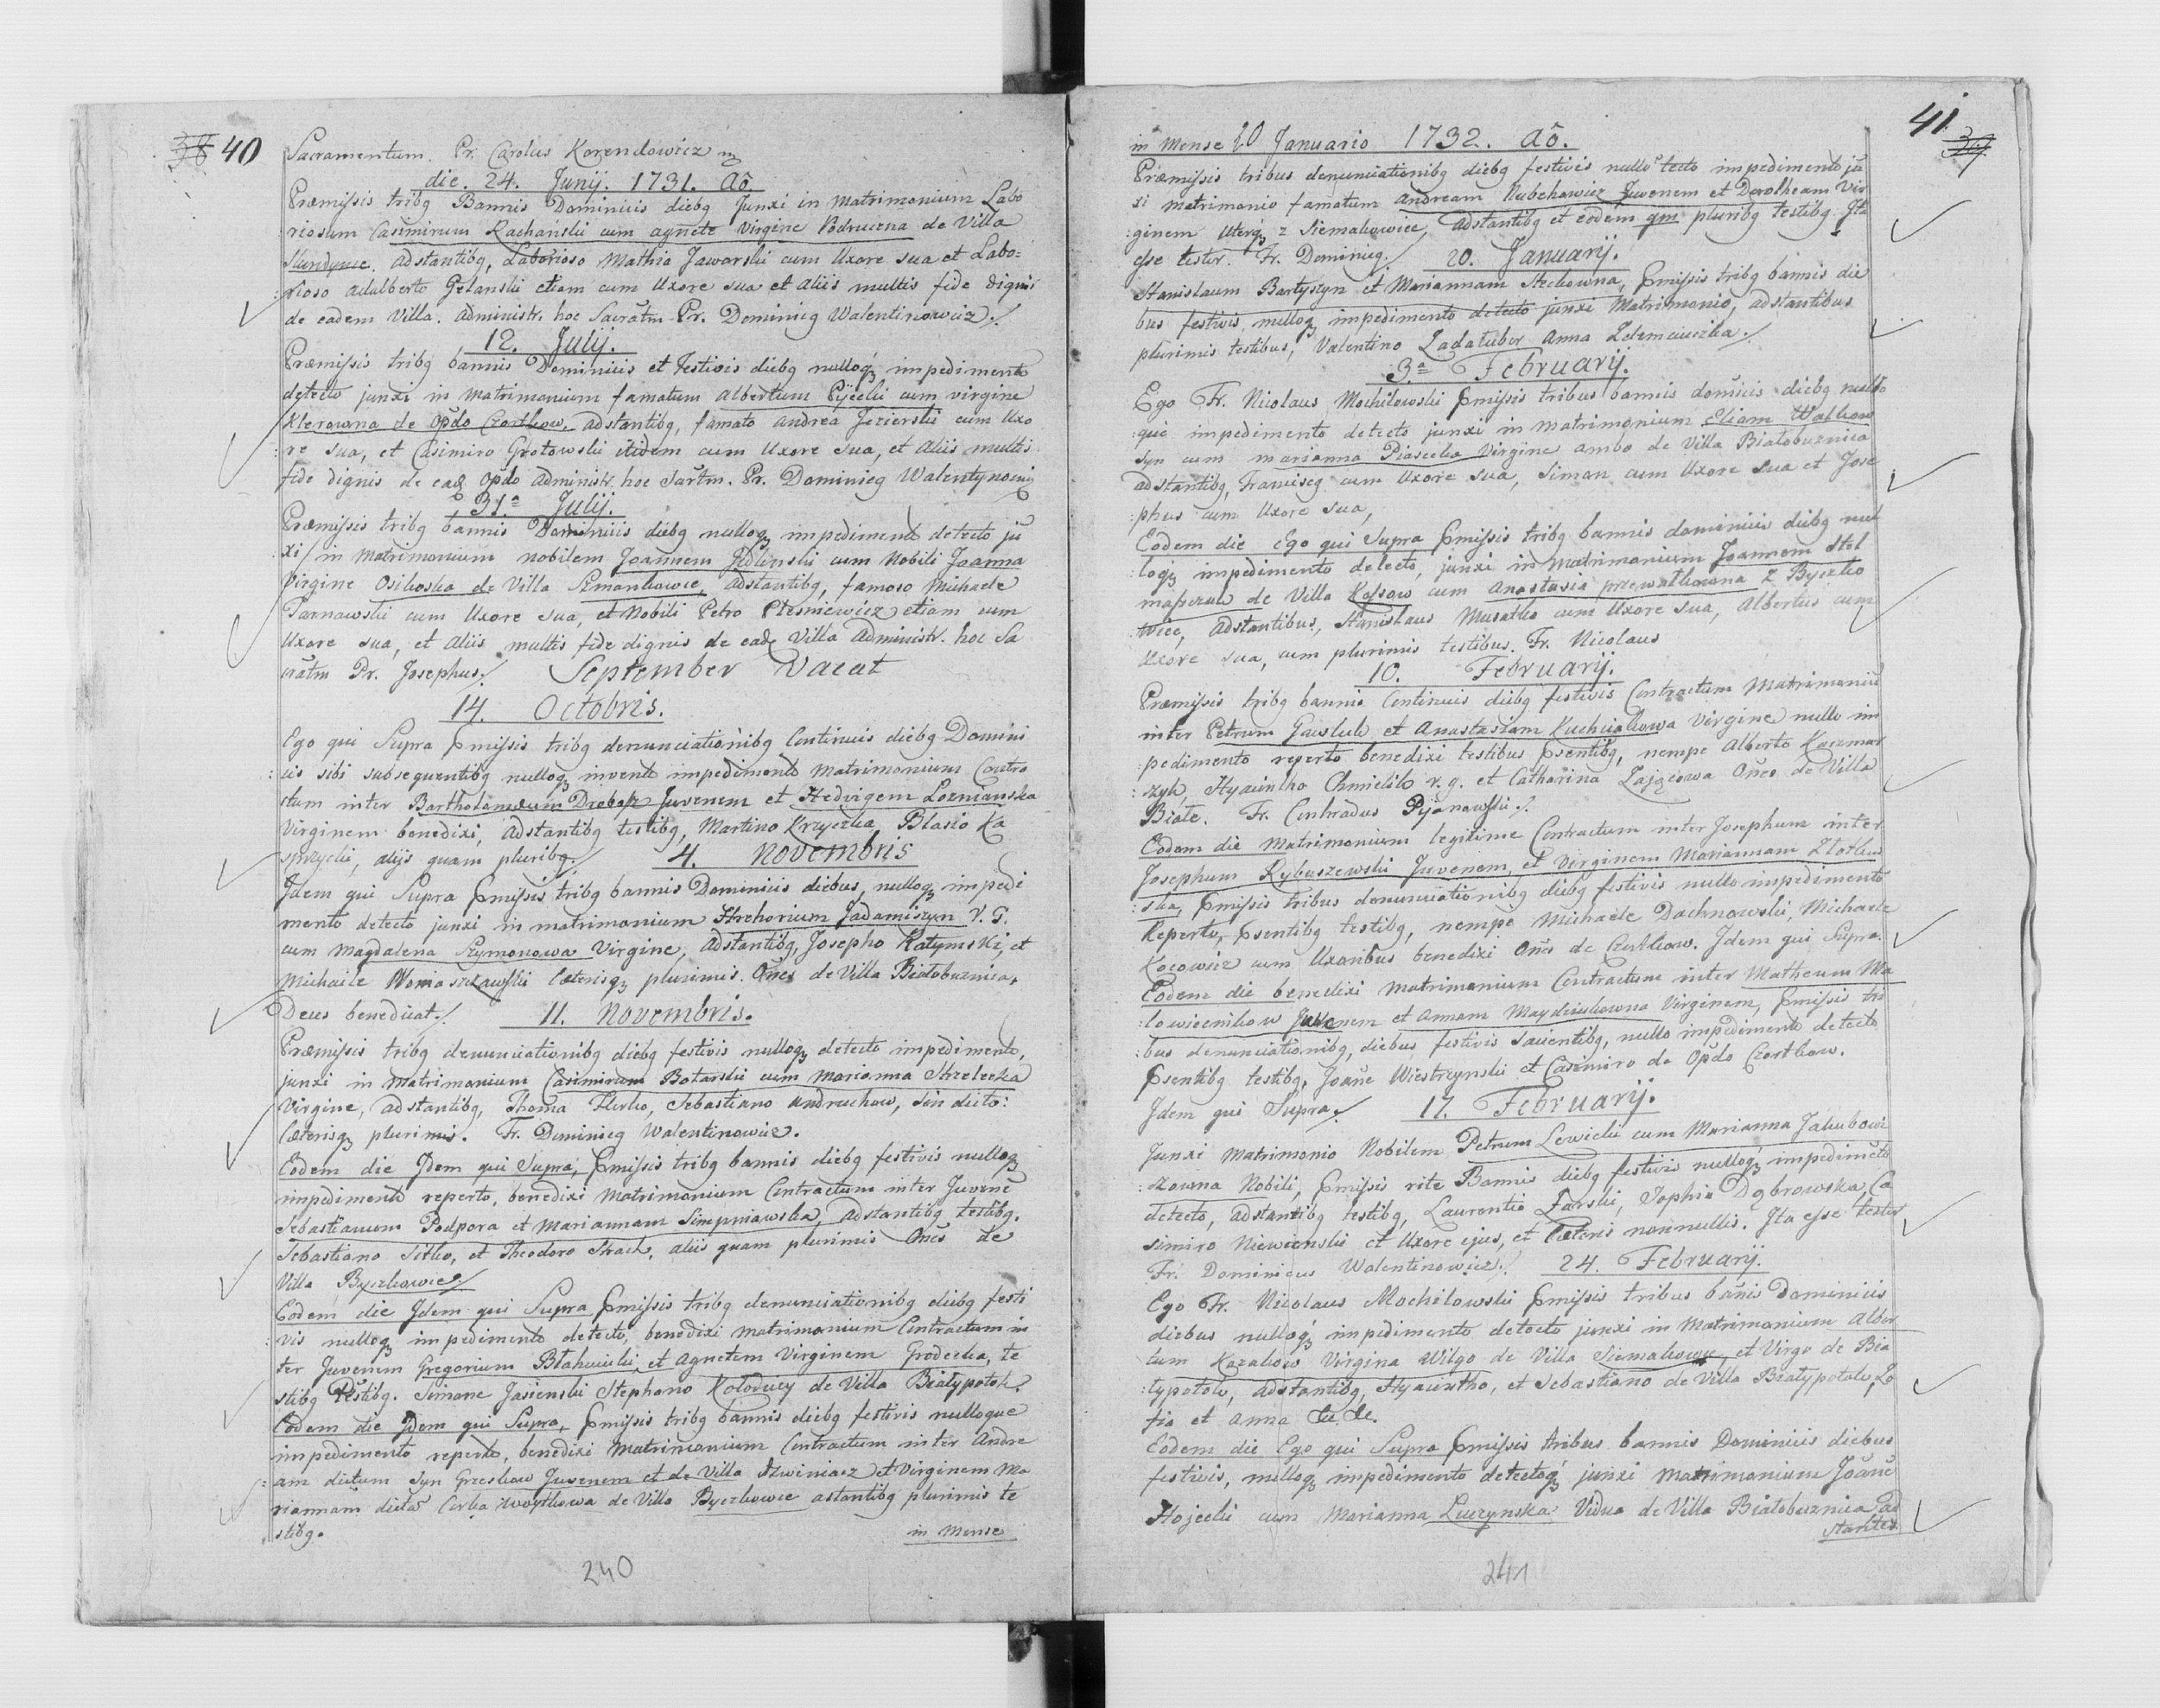 38 40
Sacramentum. Pr. Carolus Korendowicz
die. 24. Junij. 1731. Aô.
Præmissis tribq Bannis Dominicis diebq Junxi in Matrimonium Labo
riosum Casimirum Kachanski cum Agnete Virgine de Villa
adstantibq, Laborioso Mathia Jaworski cum Uxore sua et Labo=
:rioso Adalberto Gelanski etiam cum Uxore sua et Aliis multis fide digni
de eadem Villa. Administr. hoc Sacratm Pr. Dominicq Walentinowicz./.
12. Julij.
Præmissis tribq bannis Dominicis et Festivis diebq nulloq impedimento
detecto junxi in Matrimonium famatum Albertum cum virgine
Klerowna de Opdo Czortkow. adstantibq, famato Andrea Jezierski cum Uxo
:re sua, et Casimiro Grotowski itidem cum Uxore sua, et Aliis multi
fide dignis de eaq Opdo Administr. hoc Sactm. Pr. Dominicq Walentynowi
31.a Julij.
Præmissis tribq bannis Dominicis diebq nulloq impedimento detecto ju
xi/in Matrimonium nobilem Joannem Jedlinski cum Nobili Joanna
Virgine Osikoska de Villa Simankowce, adstantibq, famoso Michaele
Tarnawski cum Uxore sua, et Nobili Petro Plesniewicz etiam cum
Uxore sua, et Aliis multis fide dignis de eade Villa Administr. hoc Sa
cratm Pr. Josephus./. September Vacat
14. Octobris.
Ego qui Supra pmissis tribq denunciationibq Continuis diebq Domini
:cis sibi subsequentibq nulloq invento impedimento Matrimonium Contra
ctum inter Bartholomæum Drabasz Juvenem et Hedvigem Lozninanska
Virginem benedixi, adstantibq testibq, Martino Krzyczka, Blasio Ka
sprzycki, alijs quam pluribq./. 4. Novembris
Idem qui Supra pmissis tribq bannis Dominicis diebus, nulloq impedi
mento detecto junxi in matrimonium Hrehorium Jadamiszyn V. G.
cum Magdalena Szymonowa Virgine, adstantibq, Josepho Ratymski, et
Michaile cæterisq plurimis. Oñes de Villa Białobuznica,
Deus benedicat./. 11. Novembris.
Præmissis tribq denunciationibq diebq festivis nulloq detecto impedimento,
junxi in Matrimonium Casimirum Botarski cum Marianna Strzelecka
Virgine, adstantibq, Thoma Hurko, Sebastiano Andruchow, sin dicto:
Cæterisq plurimis. Fr. Dominicq Walentinowicz.
Eodem die Idem qui Supra, pmissis tribq bannis diebq festivis nulloq
impedimento reperto, benedixi Matrimonium Contractum inter Juvene
Sebastianum Podpora et Mariannam Simpniawska, adstantibq testibq.
Sebastiano Sitko, et Theodoro Strach, aliis quam plurimis Oñes de
Villa Byczkowce./.
Eodem die Idem qui Supra pmissis tribq denunciationibq diebq festi
:vis nulloq impedimento detecto, benedixi matrimonium Contractum in
ter Juvenem Gregorium Błahucicki, et Agnetem Virginem Grodecka, te
stibq testibq. Simone Jasienski Stephano Kołoducy de Villa Białypotok.
Eodem die Idem qui Supra, pmissis tribq bannis diebq festivis nulloque
impedimento reperto, benedixi Matrimonium Contractum inter Andre
:am dictum Syn Grzeskow Juvenem et de Villa Szwiniacz et Virginem Ma
riannam dictã Corka Woytkowa de Villa Byczkowce astantibq plurimis te
stibq.
in Mense
240
41 39
in Mense 20 Januario 1732. Aô.
Præmissis tribus denunciationibq diebq festivis nullo tecto impedimento jũ
xi matrimonio famatum Andream Juvenem et Dorotheam Vir
ginem Uterq z Siemakowice, Adstantibq et eodem qm pluribq testibq. Ita
esse testor. Fr. Dominicq./. 20. Januarij.
Stanislaum Bartyszyn et Mariannam Stechowna, pmissis tribq bannis die
bus festivis, nulloq impedimento detecto junxi Matrimonio, adstantibus
plurimis testibus, Valentino Zadatuber Anna Zelemaiuczka./.
3.a Februarij.
Ego Fr. Nicolaus Mochilowski pmissis tribus bannis domicis diebq nullo
:que impedimento detecto junxi in matrimonium Eliam Walkow
syn cum Marianna Piasecka Virgine ambo de Villa Białobuznica
adstantibq, Franciscq cum Uxore sua, Simon cum Uxore sua et Jose
:phus cum Uxore sua,
Eodem die Ego qui Supra pmissis tribq bannis dominicis diebq nul
:loq impedimento detecto, junxi in matrimonium Joannem Stel
maszczuk de Villa Kossow cum Anastasia z Byczko
wiec, adstantibus, Stanislaus Musatko cum Uxore sua, Albertus cum
Uxore sua, cum plurimis testibus. Fr. Nicolaus
10. Februarij.
Præmissis tribq bannis Continuis diebq festivis Contractum Matrimoniũ
inter Petrum Gawluk et Anastasiam Kuchciakowa Virgine nullo im
:pedimento reperto benedixi testibus psentibq, nempe Alberto Kaczmar
:szyk, Hyacintho Chmielik v.g. et Catharina Zajączowa Oñes de Villa
Białe. Fr. Conradus Pijanowski./.
Eodem die Matrimonium legitime Contractum inter Josephum inter
Josephum Rybuszewski Juvenem, et Virginem Mariannam Zlotkow
:ska, pmissis tribus denunciationibq diebq festivis nullo impedimento
Reperto, psentibq testibq, nempe Michaele Dachnowski, Michaele
Kocowicz cum Uxoribus benedixi Oñes de Czortkow. Idem qui Supra.
Eodem die benedixi Matrimonium Contractum inter Matheum Ma
:lowiecnikow Juvenem et Annam Maydaiukowna Virginem, pmissis tri
:bus denunciationibq, diebus festivis nullo impedimento detecto
psentibq testibq, Joañe Wiestrzynski et Casimiro de Opdo Czortkow.
Idem qui Supra./. 17. Februarij.
Junxi Matrimonio Nobilem Petrum Lewicki cum Marianna Jakubowi
:szowna Nobili, pmissis rite Bannis diebq festivis nulloq impedimeto
detecto, adstantibq testibq, Laurentio Zarski, Sophia Dąbrowska, Ca
simiro Niewienski et Uxore ejus, et Cæteris nonnullis. Ita esse testor
Fr. Dominicus Walentinowicz./. 24. Februarij.
Ego Fr. Nicolaus Mochilowski pmissis tribus bañis Dominicis
diebus nulloq impedimento detecto junxi in Matrimonium Alber
tum Kozakow Virgina Wilgo de Villa Siemakowce et Virgo de Bia
:lypotok, adstantibq, Hyacintho, et Sebastiano de Villa Białypotok, Zo
fia et Anna
Eodem die Ego qui Supra pmissis tribus bannis Dominicis diebus
festivis, nulloq impedimento detectoq junxi Matrimonium Joañe
Hojecki cum Marianna Luczynska Vidua de Villa Białobuznica, ad
stantes.
241